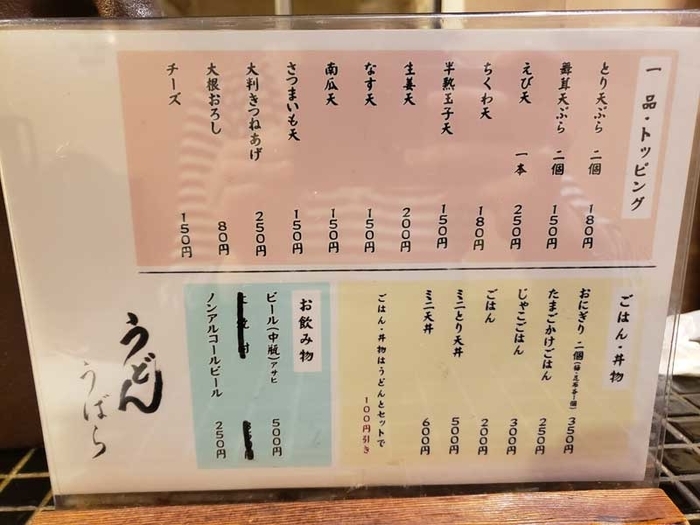 一品・トッピング
とり天ぷら 二個 180円
舞茸天ぷら 二個 150円
えび天 一本 250円
ちくわ天 180円
半熟玉子天 150円
生姜天 200円
なす天 150円
南瓜天 150円
さつまいも天 150円
大判きつねあげ 250円
大根おろし 80円
チーズ 150円
ごはん・丼物
おにぎり 二個 350円
たまごかけごはん 250円
じゃこごはん 300円
ごはん 200円
ミニとり天丼 500円
ミニ天丼 600円
ごはん・丼物はうどんとセットで
100円引き
お飲み物
ビール(中瓶)アサヒ 500円
ノンアルコールビール 250円
うどん
うばら